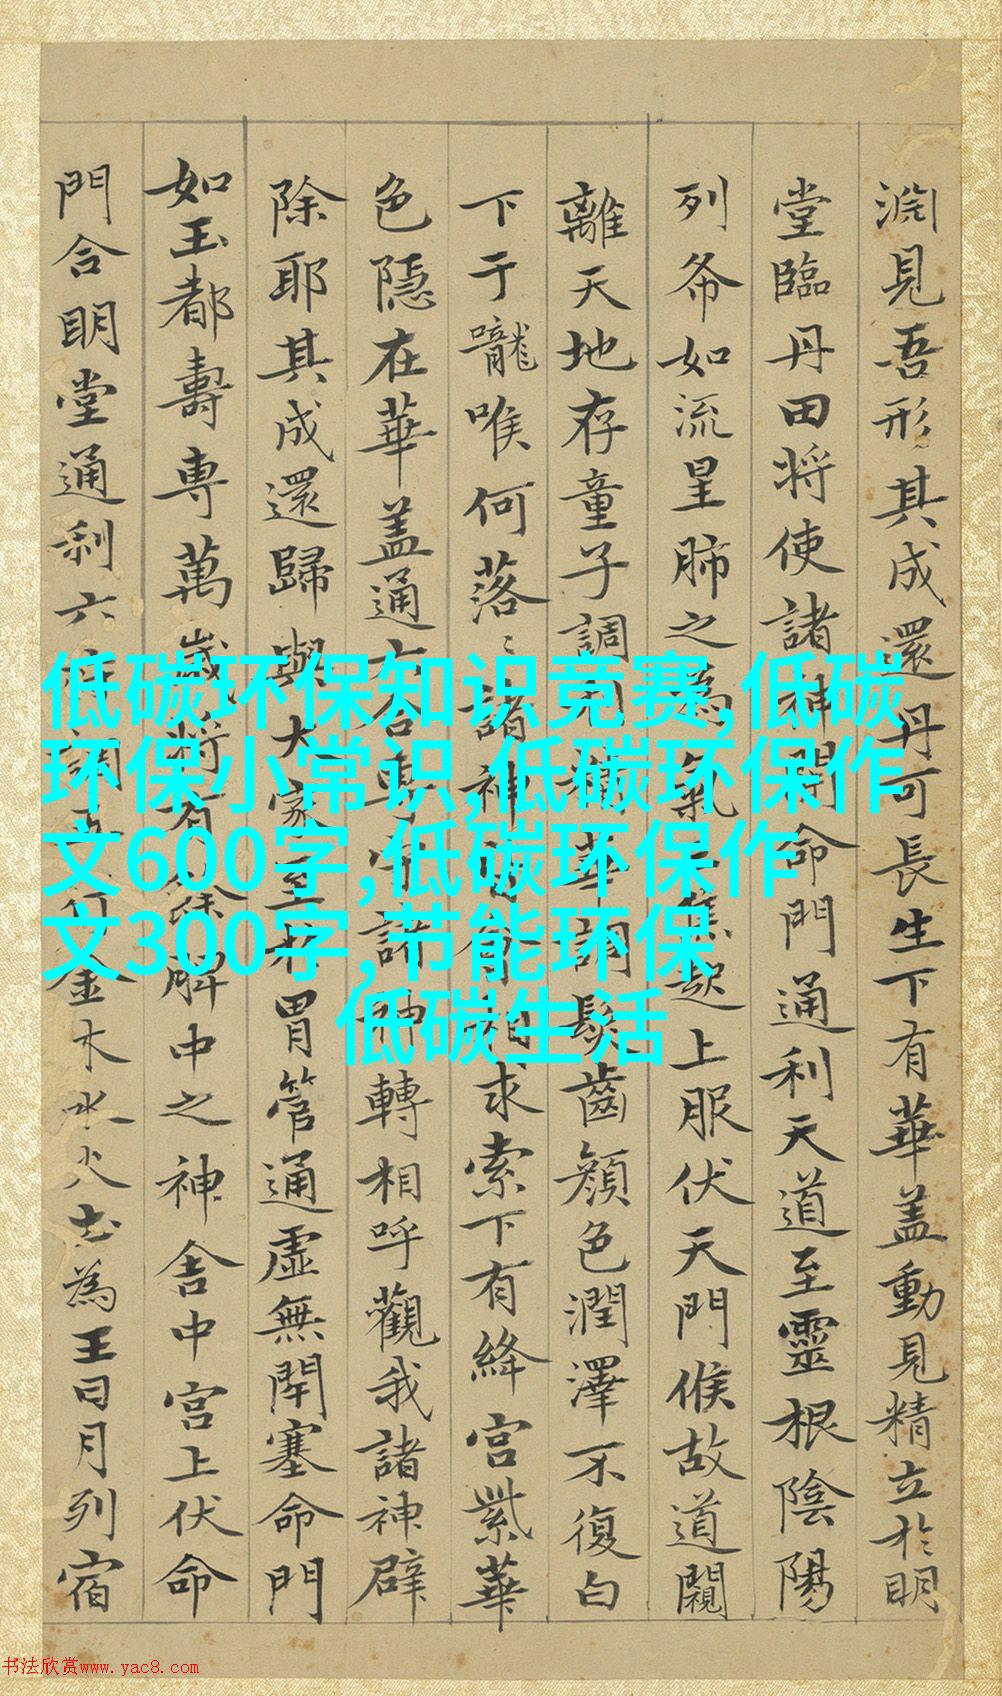 渕見吾形其成還丹可長生下有華盖動見精立於明
堂臨丹田将使諸神開命門通利天道至靈根陰陽
列布如流星肺之為氣三焦起上服伏天門候故道闚
離天地存童子調和精華調髮齒顔色潤澤不復白
下于嚨喉何落〻諸神皆會相求索下有絳宮紫華
色隱在華盖通六合專守諸神轉相呼觀我諸神辟
除耶其成還歸與大家至於胃管通虛無閉塞命門
如玉都壽専萬歲將有餘脾中之神舍中宮上伏命
門合明堂通利六府調五行金木水火土為王日月列宿
低碳环保知识竞赛,低碳
环保小常识,低碳环保作
文600字,低碳环保作
文300字,节能环保
低碳生活
书法欣赏www.yac8.com